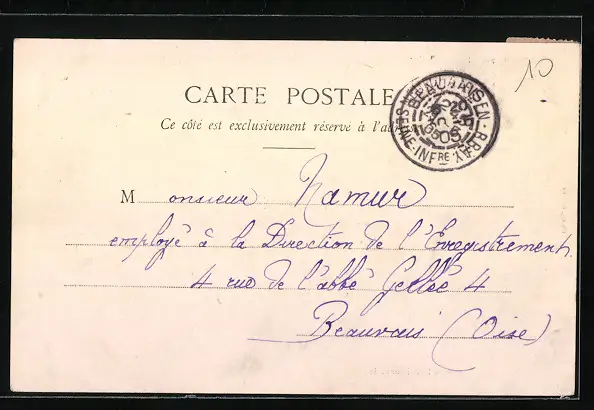 10
CARTE POSTALE
Ce côté est exclusivement réservé à l'ad
BEAUVAIS EN-BRAY
INFRE
05
Monsieur Namur
employé à la Direction de l'Enregistrement
4 rue de l'abbé Gellée 4
Beauvais (Oise)